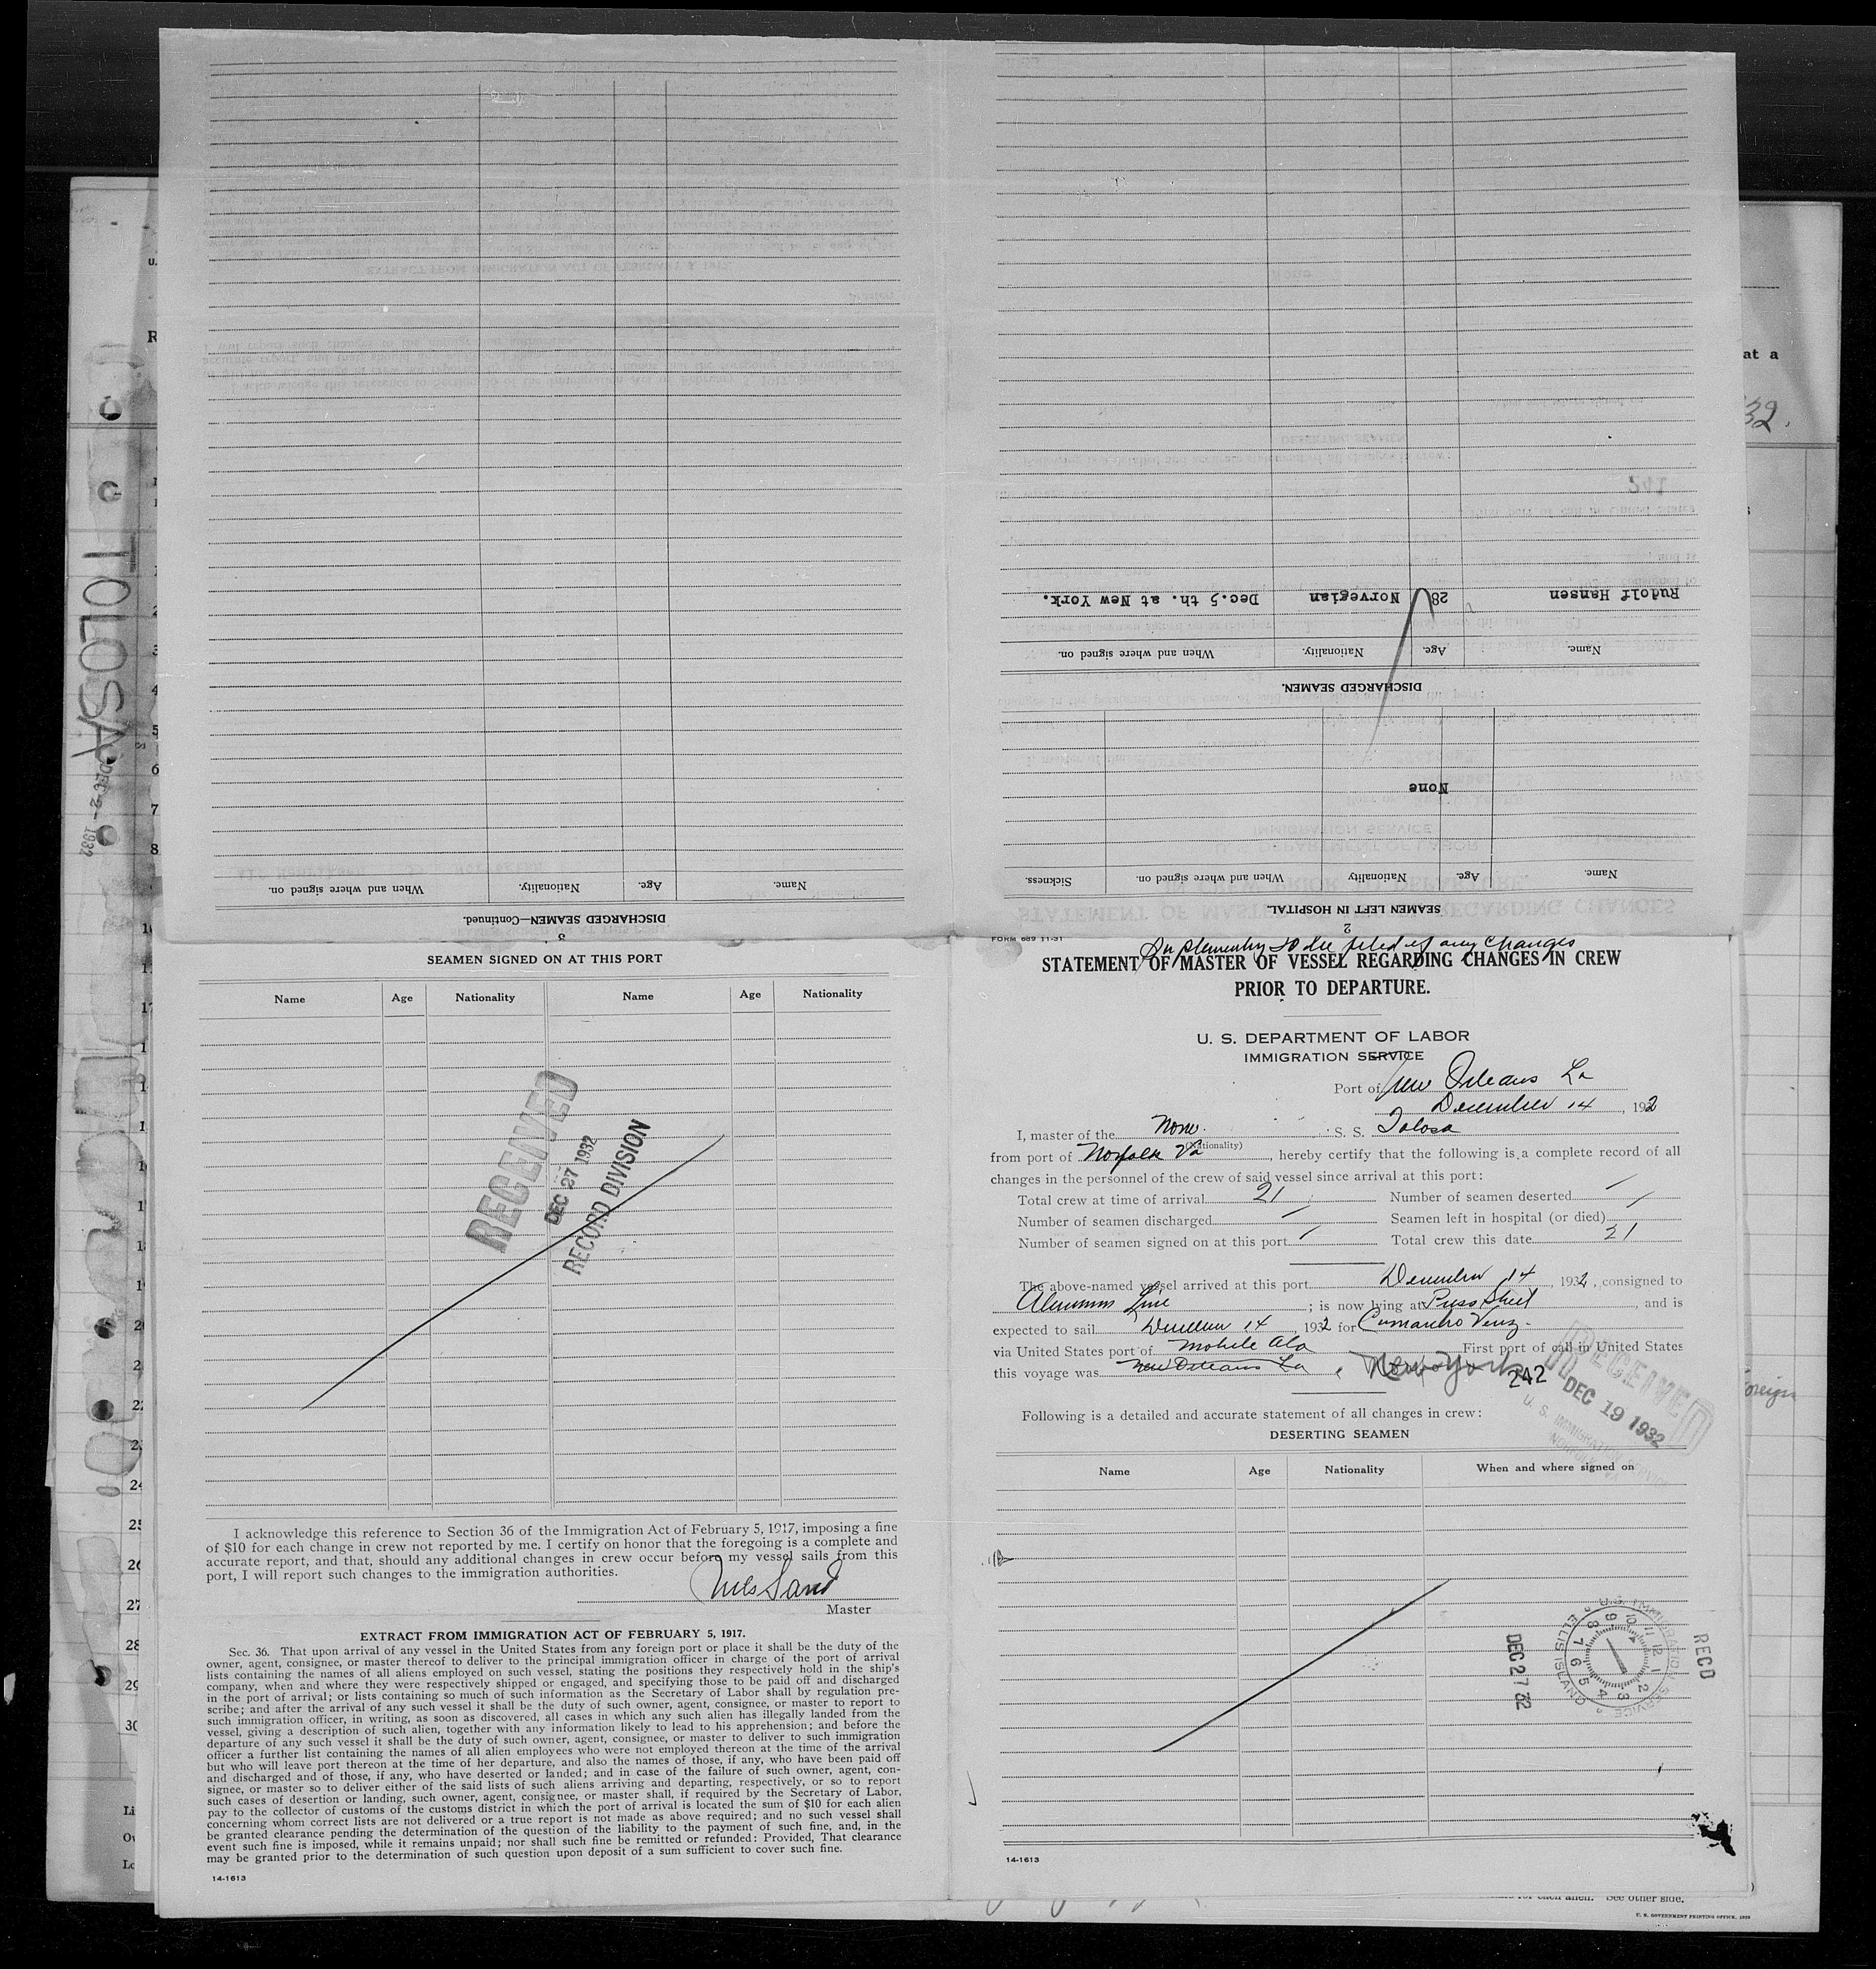 2
SEAMEN LEFT IN HOSPITAL.
Name. Age. Nationality When and where signed on. Sickness.
None
DISCHARGED SEAMEN.
Name. Age. Nationality. When and where signed on.
Rudolf Hansen 28 Norwegian Dec.5 th. at New York.
3
DISCHARGED SEAMEN—Continued.
Name. Age. Nationality. When and where signed on.
TOLOSA
DEC 2 - 1932
at a
32.
SEAMEN SIGNED ON AT THIS PORT
Name Age Nationality Name Age Nationality
RECEIVED
DEC 27 1932
RECORD DIVISION
I acknowledge this reference to Section 36 of the Immigration Act of February 5, 1917, imposing a fine
of $10 for each change in crew not reported by me. I certify on honor that the foregoing is a complete and
accurate report, and that, should any additional changes in crew occur before my vessel sails from this
port, I will report such changes to the immigration authorities.
Master
EXTRACT FROM IMMIGRATION ACT OF FEBRUARY 5, 1917.
Sec. 36. That upon arrival of any vessel in the United States from any foreign port or place it shall be the duty of the
owner, agent, consignee, or master thereof to deliver to the principal immigration officer in charge of the port of arrival
lists containing the names of all aliens employed on such vessel, stating the positions they respectively hold in the ship's
company, when and where they were respectively shipped or engaged, and specifying those to be paid off and discharged
in the port of arrival; or lists containing so much of such information as the Secretary of Labor shall by regulation pre-
scribe; and after the arrival of any such vessel it shall be the duty of such owner, agent, consignee, or master to report to
such immigration officer, in writing, as soon as discovered, all cases in which any such alien has illegally landed from the
vessel, giving a description of such alien, together with any information likely to lead to his apprehension; and before the
departure of any such vessel it shall be the duty of such owner, agent, consignee, or master to deliver to such immigration
officer a further list containing the names of all alien employees who were not employed thereon at the time of the arrival
but who will leave port thereon at the time of her departure, and also the names of those, if any, who have been paid off
and discharged and of those, if any, who have deserted or landed; and in case of the failure of such owner, agent, con-
signee, or master so to deliver either of the said lists of such aliens arriving and departing, respectively, or so to report
such cases of desertion or landing, such owner, agent, consignee, or master shall, if required by the Secretary of Labor,
pay to the collector of customs of the customs district in which the port of arrival is located the sum of $10 for each alien
concerning whom correct lists are not delivered or a true report is not made as above required; and no such vessel shall
be granted clearance pending the determination of the question of the liability to the payment of such fine, and, in the
event such fine is imposed, while it remains unpaid; nor shall such fine be remitted or refunded: Provided, That clearance
may be granted prior to the determination of such question upon deposit of a sum sufficient to cover such fine.
14-1613
FORM 689 11-31
to be filed if any changes
STATEMENT OF MASTER OF VESSEL REGARDING CHANGES IN CREW
PRIOR TO DEPARTURE.
U. S. DEPARTMENT OF LABOR
IMMIGRATION SERVICE
Port of New Orleans La
December 14, 192
I, master of the Norw. S. S. Tolosa
(Nationality)
from port of Norfolk Va, hereby certify that the following is a complete record of all
changes in the personnel of the crew of said vessel since arrival at this port:
Total crew at time of arrival 21 Number of seamen deserted /
Number of seamen discharged / Seamen left in hospital (or died) /
Number of seamen signed on at this port / Total crew this date 21
The above-named vessel arrived at this port December 14, 1932, consigned to
Aluminum Line; is now lying at Press Street, and is
expected to sail December 14 1932 for Cumarebo Venz.
via United States port of Mobile Ala First port of call in United States
this voyage was New Orleans La, New York
242
RECEIVED
DEC 19 1932
U. S. IMMIGRATION SERVICE
NORFOLK, VA
Following is a detailed and accurate statement of all changes in crew:
DESERTING SEAMEN
Name Age Nationality When and where signed on
RECD
U.S. IMMIGRATION SERVICE
ELLIS ISLAND
DEC 27 32
14-1613
foreign
for each alien. See other side.
U. S. GOVERNMENT PRINTING OFFICE